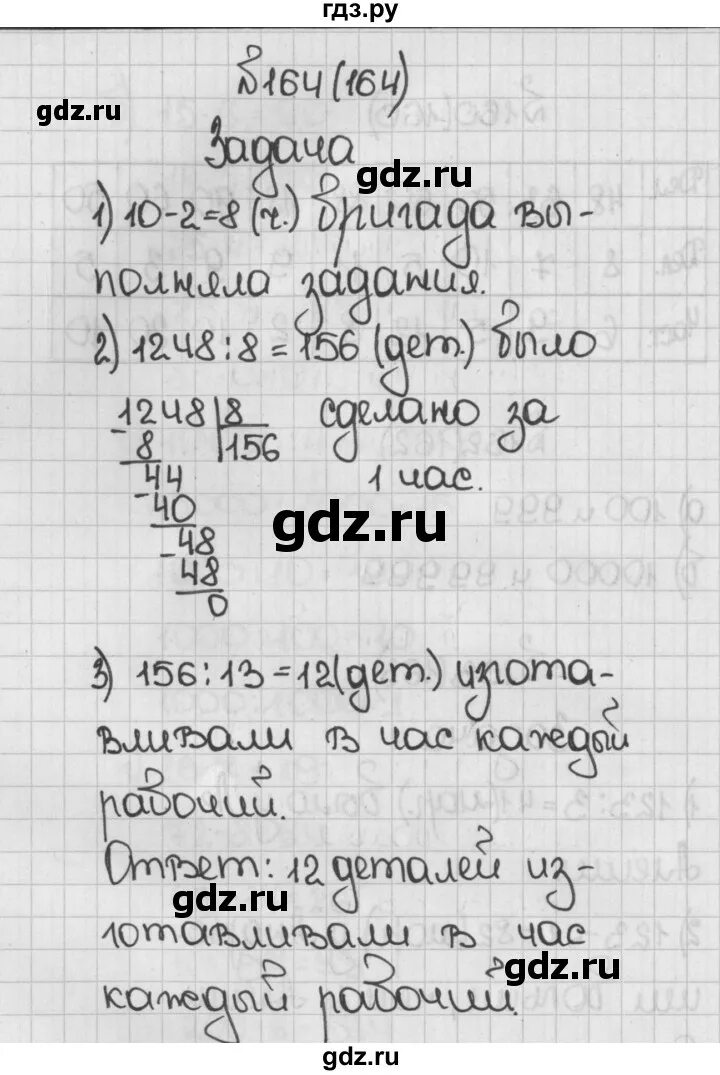 гдз.ру
№164(164)
gdz.ru
Задача
gdz.ru
1) 10-2=8 (ч.) бригада вы-
полняла задания.
gdz.ru
2) 1248:8=156 (дет.) было
1248|8 сделано за
-8 156 1 час.
-44
40
gdz.ru
-48
48
0
3) 156:13=12(дет.) изгота-
вливали в час каждый
gdz.ru
рабочий.
Ответ: 12 деталей из-
gdz.ru
готавливали в час
gdz.ru
каждый рабочий.
gdz.ru